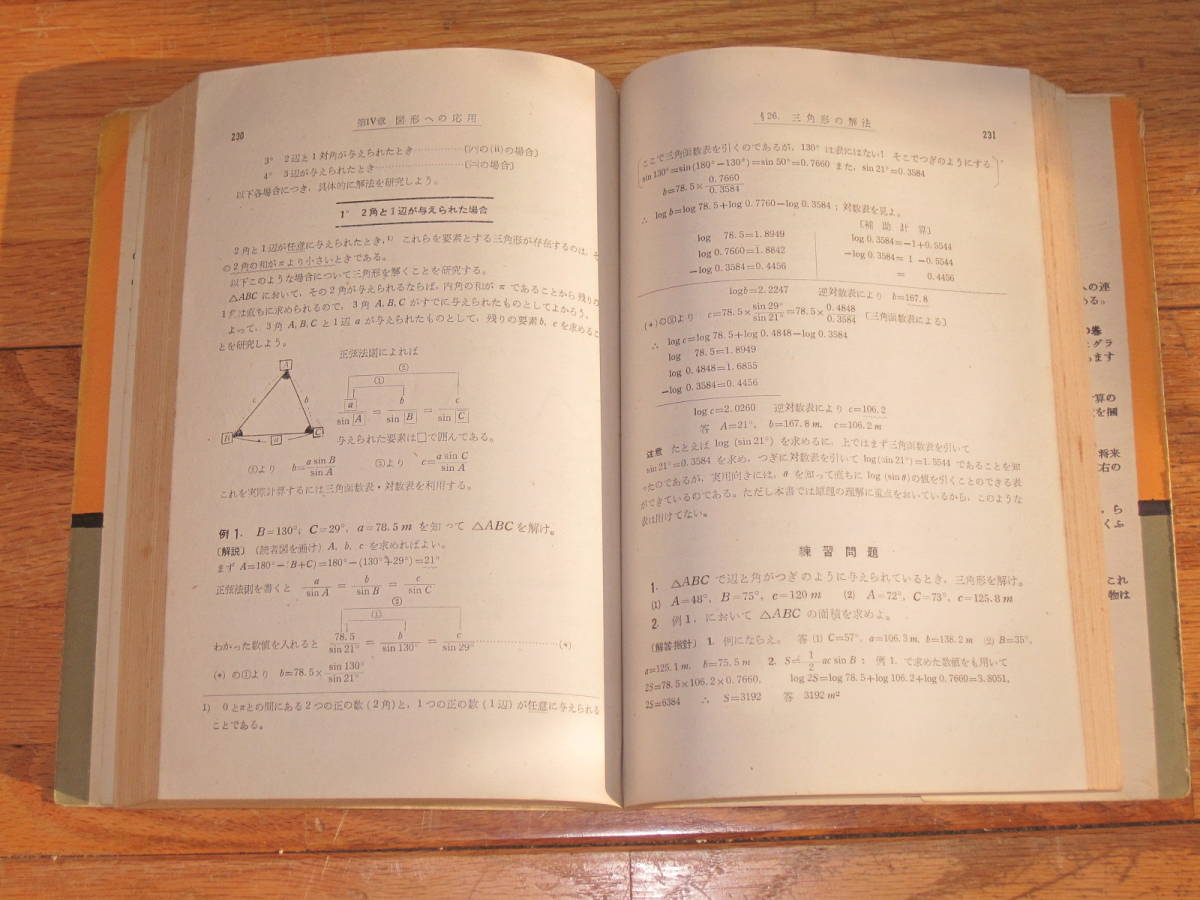 230
第IV章 図形への応用
3° 2辺と1対角が与えられたとき…………(ハの(ii)の場合)
4° 3辺が与えられたとき…………(ニの場合)
以下各場合につき，具体的に解法を研究しよう。
1° 2角と1辺が与えられた場合
2角と1辺が任意に与えられたとき,¹⁾ これらを要素とする三角形が存在するのは，そ
の2角の和がπより小さいときである。
以下このような場合について三角形を解くことを研究する。
△ABCにおいて，その2角が与えられるならば，内角の和がπであることから残りの
1角は直ちに求められるので，3角A, B, Cがすでに与えられたものとしてよかろう。
よって，3角A, B, Cと1辺aが与えられたものとして，残りの要素b, cを求めるこ
とを研究しよう。
正弦法則によれば
②
①
a/sin A = b/sin B = c/sin C
与えられた要素は□で囲んである。
A
c b
B a C
①より b=a sin B/sin A ②より c=a sin C/sin A
これを実際計算するには三角函数表・対数表を利用する。
例1. B=130°; C=29°, a=78.5m を知って △ABCを解け。
〔解説〕 (読者図を画け) A, b, c を求めればよい。
まず A=180°-(B+C)=180°-(130°+29°)=21°
正弦法則を書くと a/sin A = b/sin B = c/sin C
②
①
わかった数値を入れると 78.5/sin 21° = b/sin 130° = c/sin 29° …………(*)
(*)の①より b=78.5×sin 130°/sin 21°
1) 0とπとの間にある2つの正の数(2角)と，1つの正の数(1辺)が任意に与えられる
ことである。
§26. 三角形の解法
231
(ここで三角函数表を引くのであるが，130°は表にはない! そこでつぎのようにする
sin 130°=sin(180°-130°)=sin 50°=0.7660 また，sin 21°=0.3584)
b=78.5×0.7660/0.3584
∴ log b=log 78.5+log 0.7760-log 0.3584 ; 対数表を見よ。
〔補助計算〕
log 78.5=1.8949
log 0.7660=1.8842
-log 0.3584=0.4456
log 0.3584=-1+0.5544
-log 0.3584= 1 -0.5544
= 0.4456
log b=2.2247 逆対数表により b=167.8
(*)の②より c=78.5×sin 29°/sin 21°=78.5×0.4848/0.3584 〔三角函数表による〕
∴ log c=log 78.5+log 0.4848-log 0.3584
log 78.5=1.8949
log 0.4848=1.6855
-log 0.3584=0.4456
log c=2.0260 逆対数表により c=106.2
答 A=21°, b=167.8 m, c=106.2 m
注意 たとえば log (sin 21°) を求めるに，上ではまず三角函数表を引いて
sin 21°=0.3584 を求め，つぎに対数表を引いて log(sin 21°)=1.5544 であることを知
ったのであるが，実用向きには，θを知って直ちに log (sin θ) の値を引くことのできる表
ができているのである。ただし本書では原題の理解に重点をおいているから，このような
表は附けてない。
練習問題
1. △ABC で辺と角がつぎのように与えられているとき，三角形を解け。
(1) A=48°, B=75°, c=120 m (2) A=72°, C=73°, c=125.8 m
2. 例1, において △ABC の面積を求めよ。
〔解答指針〕 1. 例にならえ。 答 (1) C=57°, a=106.3 m, b=138.2 m (2) B=35°,
a=125.1 m, b=75.5 m 2. S=1/2 ac sin B : 例1. で求めた数値をも用いて
2S=78.5×106.2×0.7660, log 2S=log 78.5+log 106.2+log 0.7660=3.8051,
2S=6384 ∴ S=3192 答 3192 m²
の連
める。
の巻
グラ
ます
算の
を聞
将来
右の
ら
くふ
これ
物は